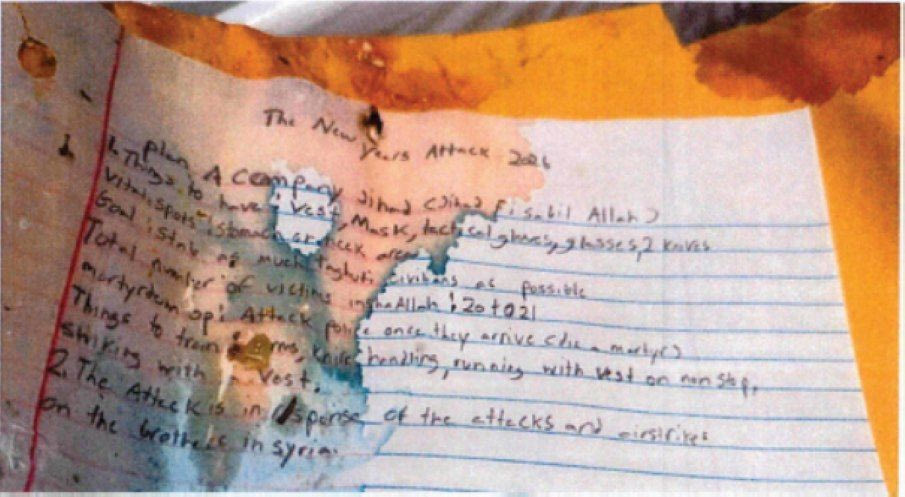 The New Years Attack 2026
1. plan A Company Jihad (Jihad fi sabil Allah)
Things to have: vest, Mask, tactical gloves, glasses, 2 knives
vital spots: stomach or neck area
Goal: stab as much taghuti civilians as possible
Total number of victims inshaAllah: 20 to 21
martyrdom op: Attack police once they arrive (die a martyr)
Things to train: arms, knife handling, running with vest on non stop,
striking with a vest.
2. The Attack is in response of the attacks and airstrikes
on the brothers in syria.